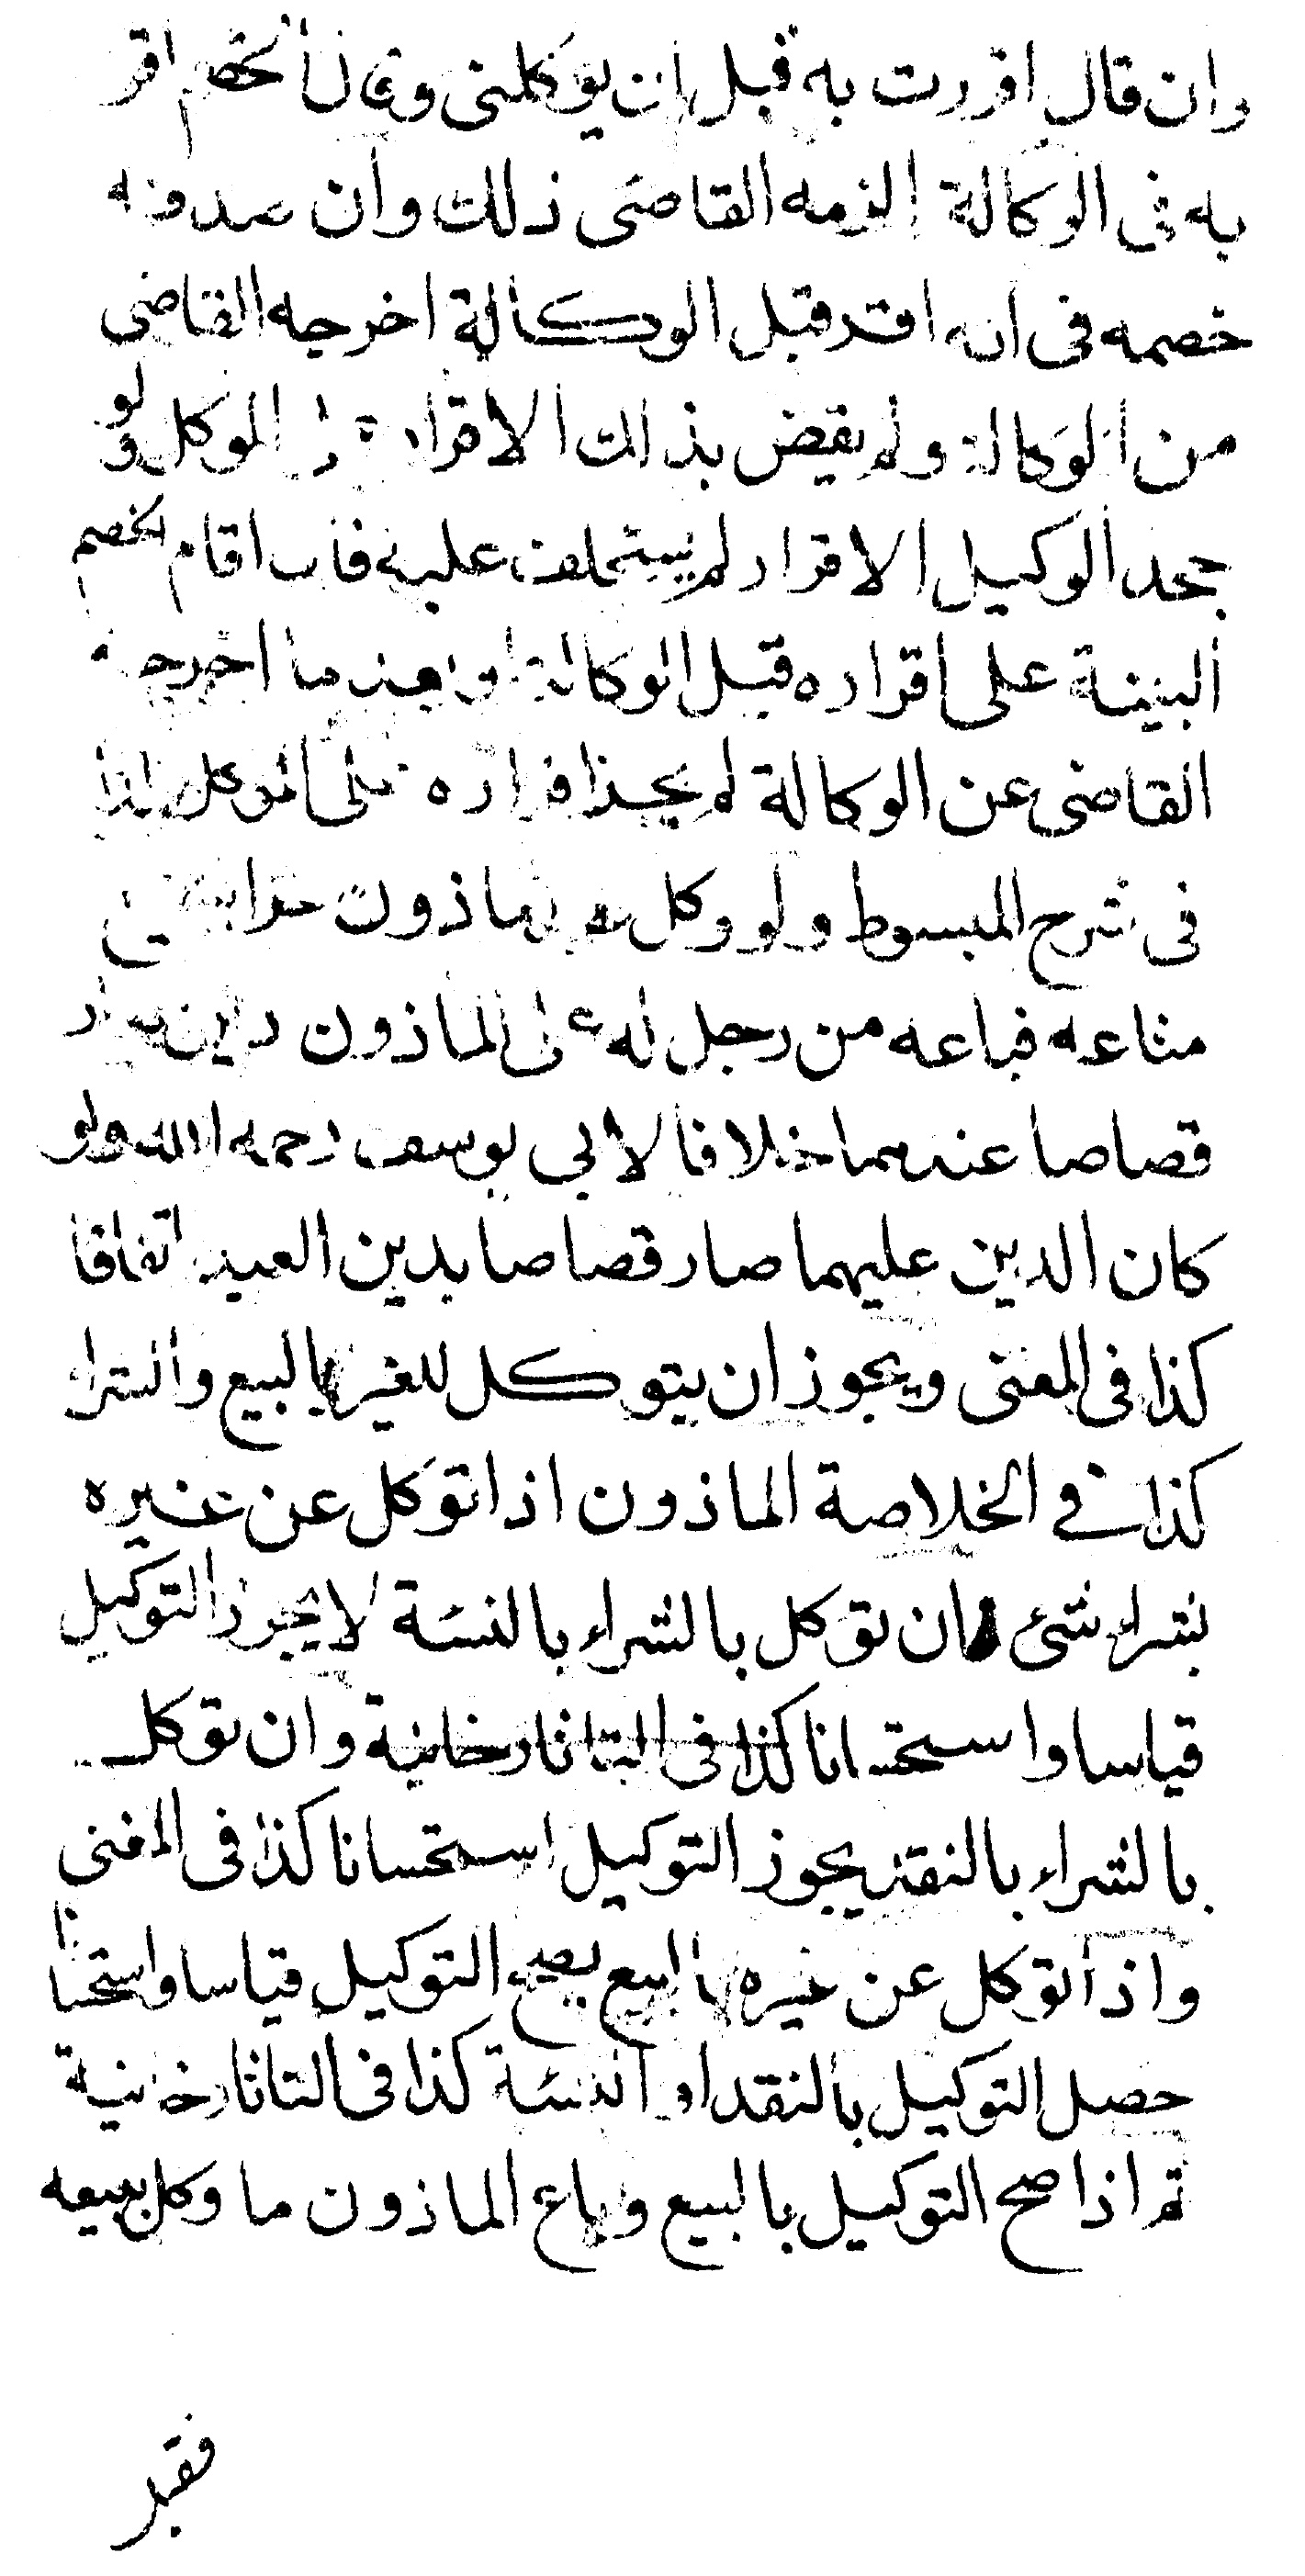 وان قال اقررت به قبل ان يوكلنى وقال الخصم اقر
به فى الوكالة الزمه القاضى ذلك وان صدقه
خصمه فى انه اقر قبل الوكالة اخرجه القاضى
من الوكالة ولم يقض بذلك الاقرار الموكل ولو
جحد الوكيل الاقرار لم يستحلف عليه فان اقام الخصم
البينة على اقراره قبل الوكالة او بعد ما اخرجه
القاضى عن الوكالة لم يجز اقراره على الموكل كذا
فى شرح المبسوط ولو وكل الماذون حرا ببيع
متاعه فباعه من رجل له على الماذون دين صار
قصاصا عندهما خلافا لابى يوسف رحمه الله ولو
كان الدين عليهما صار قصاصا بدين العبد اتفاقا
كذا فى المغنى ويجوز ان يتوكل للغير بالبيع والشراء
كذا فى الخلاصة الماذون اذا توكل عن غيره
بشراء شئ فان توكل بالشراء بالنسئة لا يجوز التوكيل
قياسا واستحسانا كذا فى التاتارخانية وان توكل
بالشراء بالنقد يجوز التوكيل استحسانا كذا فى المغنى
واذا توكل عن غيره بالبيع يصح التوكيل قياسا واستحسانا
حصل التوكيل بالنقد او النسئة كذا فى التاتارخانية
ثم اذا صح التوكيل بالبيع وباع الماذون ما وكل ببيعه